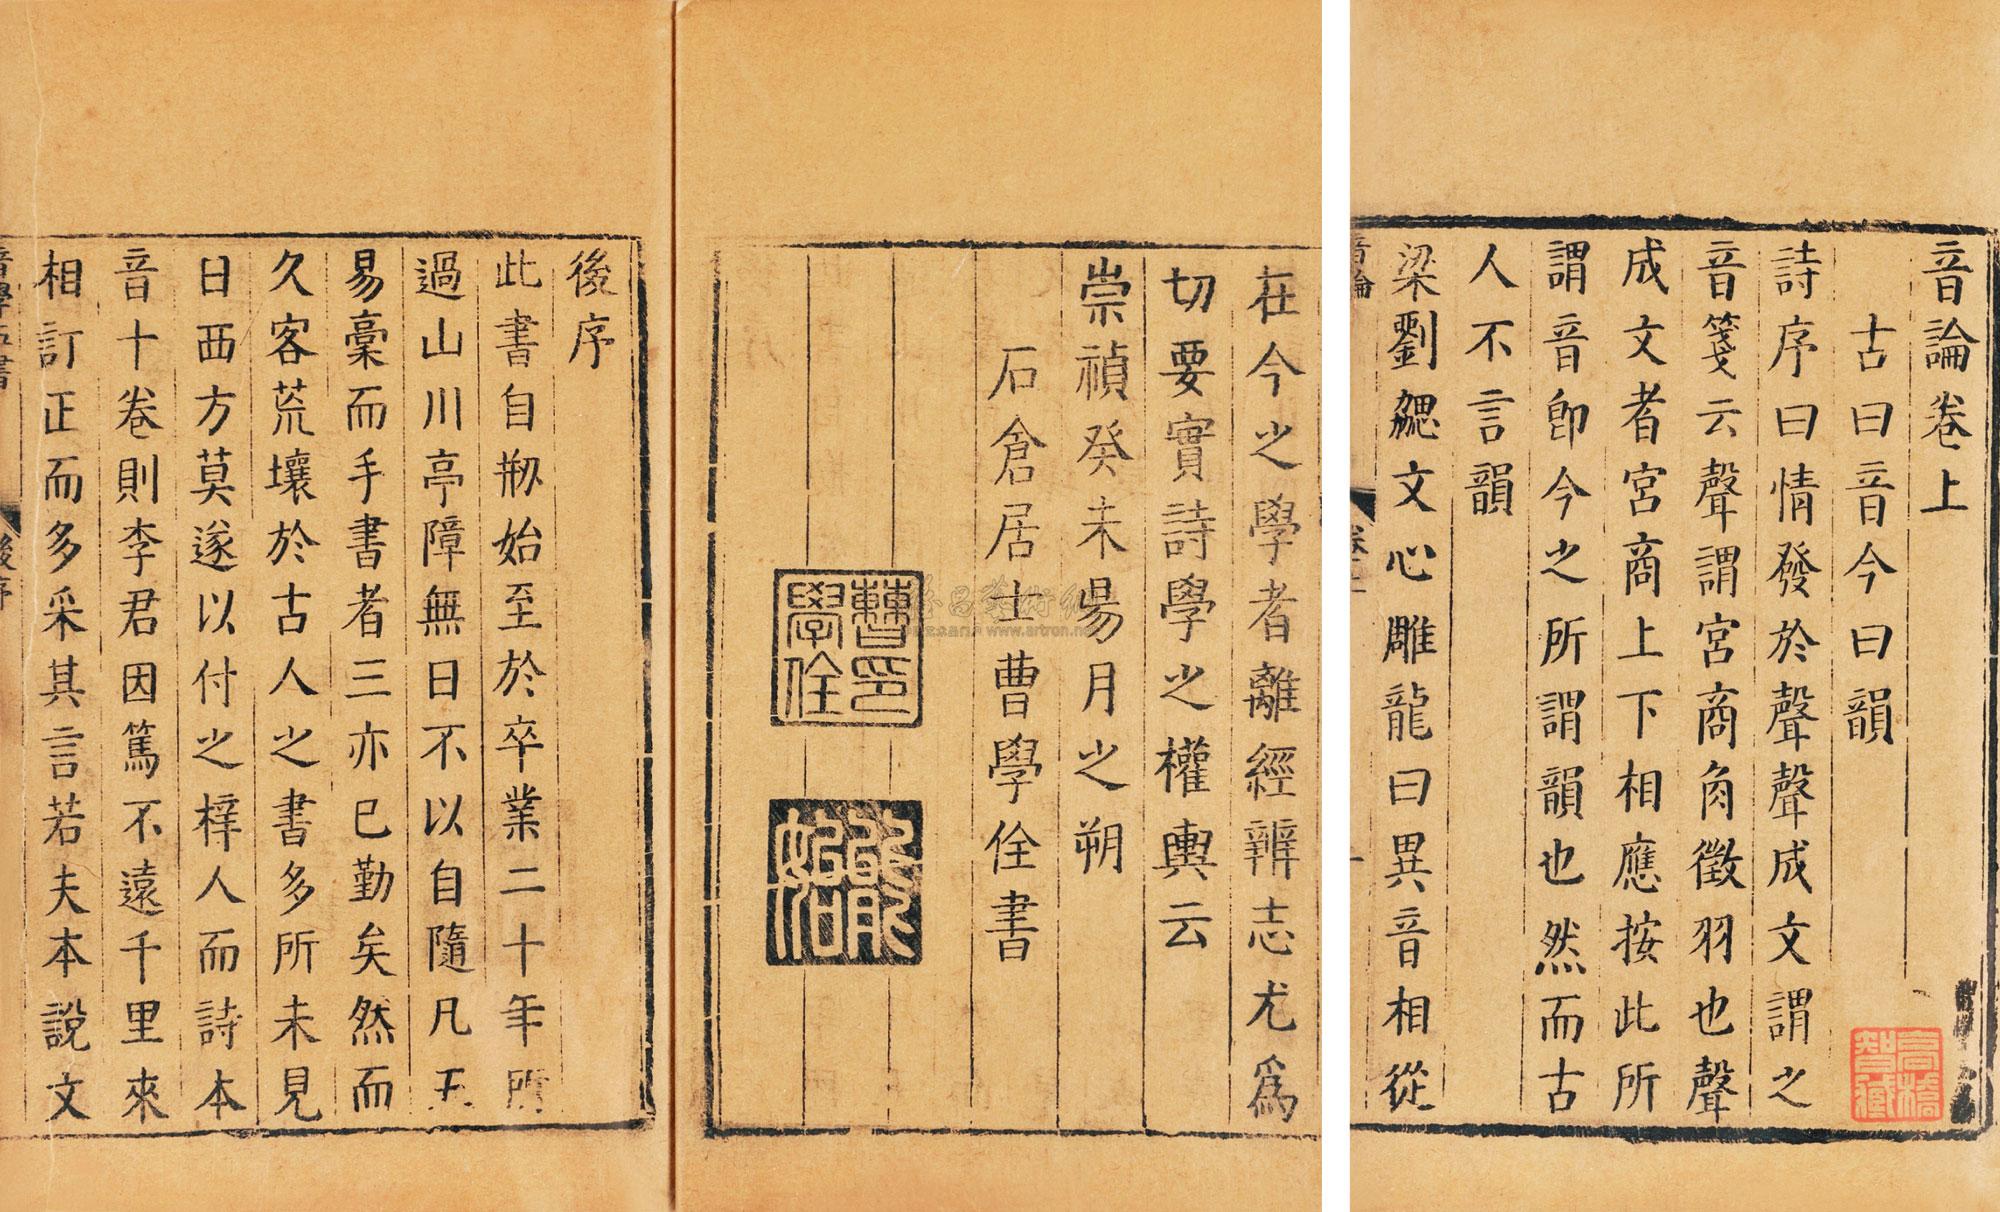 音論卷上
古曰音今曰韻
詩序曰情發於聲聲成文謂之
音箋云聲謂宮商角徵羽也聲
成文者宮商上下相應按此所
謂音卽今之所謂韻也然而古
人不言韻
梁劉勰文心雕龍曰異音相從
音論
卷上
一
高橋
智藏
在今之學者離經辨志尤爲
切要實詩學之權輿云
崇禎癸未昜月之朔
石倉居士曹學佺書
曹印
學佺
能始
後序
此書自刱始至於卒業二十年所
過山川亭障無日不以自隨凡五
易稾而手書者三亦已勤矣然而
久客荒壤於古人之書多所未見
日西方莫遂以付之梓人而詩本
音十卷則李君因篤不遠千里來
相訂正而多采其言若夫本說文
音學五書
後序
www.artron.net